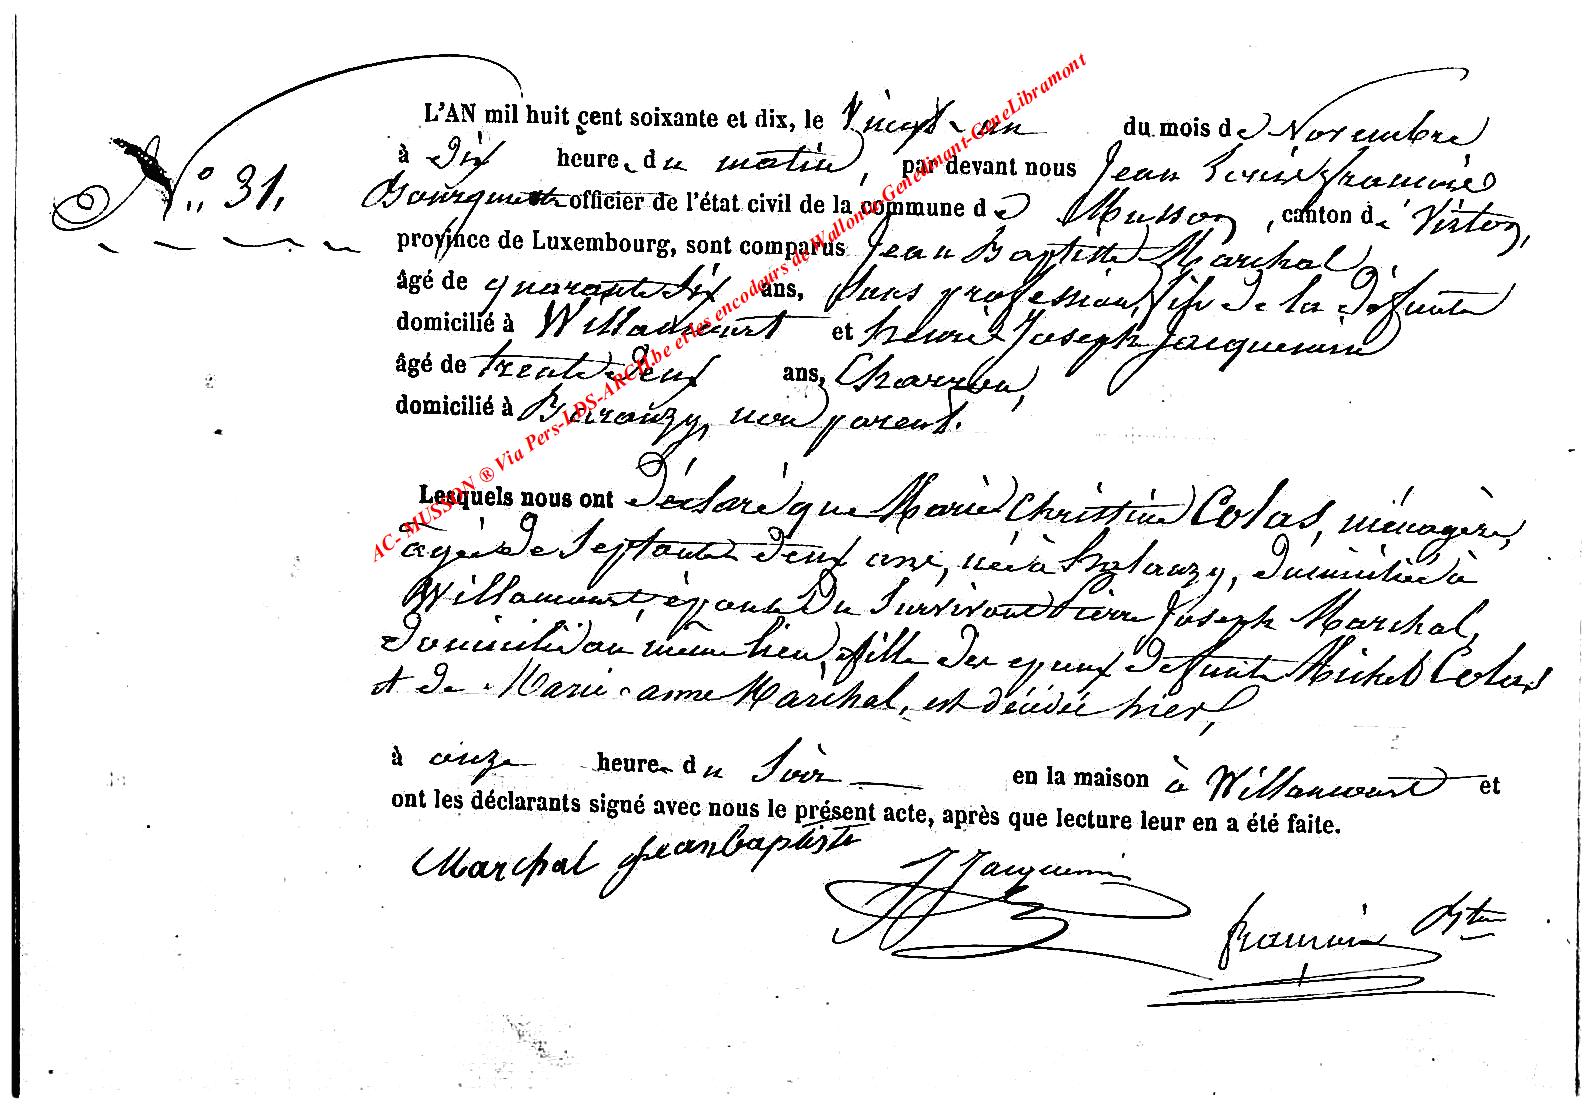 N° 31.
L'AN mil huit cent soixante et dix, le Vingt-un du mois de Novembre
à Dix heure du matin, par devant nous Jean Louis François
officier de l'état civil de la commune de Musson, canton de Virton,
province de Luxembourg, sont comparus Jean Baptiste Marchal
âgé de quarante six ans, sans profession, fils de la défunte
domicilié à Willancourt et henri Joseph Jacquemin
âgé de trente deux ans, Charron,
domicilié à Baranzy, non parent.
Lesquels nous ont Déclaré que Marie Christine Colas, ménagère,
agée de Septante deux ans, née à halanzy, domiciliée à
Willancourt, épouse du survivant Pierre Joseph Marchal,
domicilié au même lieu, fille des epoux defunts Michel Colas
et de Marie-anne Marchal, est décédée hier,
à onze heure du Soir en la maison à Willancourt et
ont les déclarants signé avec nous le présent acte, après que lecture leur en a été faite.
Marchal jeanbaptiste
Jacquemin
françois
AC- MUSSON ® Via Pers-LDS-ARCH.be et les encodeurs de Wallonie-Genedinant-GeneLibramont